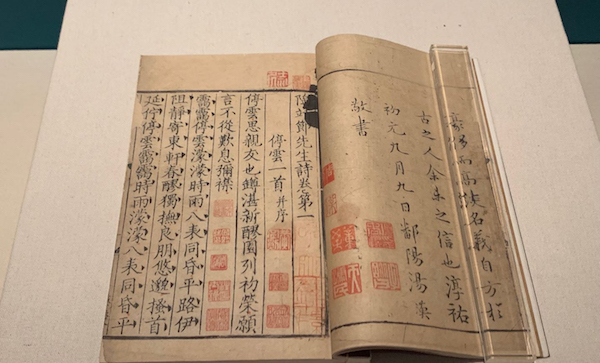 豪侈而高談名義自方於
古之人余未之信也淳祐
初元九月九日鄱陽湯漢
敬書
陶靖節先生詩卷第一
停雲一首 并序
停雲思親友也罇湛新醪園列初榮願
言不從歎息彌襟
靄靄停雲濛濛時雨八表同昏平路伊
阻靜寄東軒春醪獨撫良朋悠邈搔首
延佇停雲靄靄時雨濛濛八表同昏平